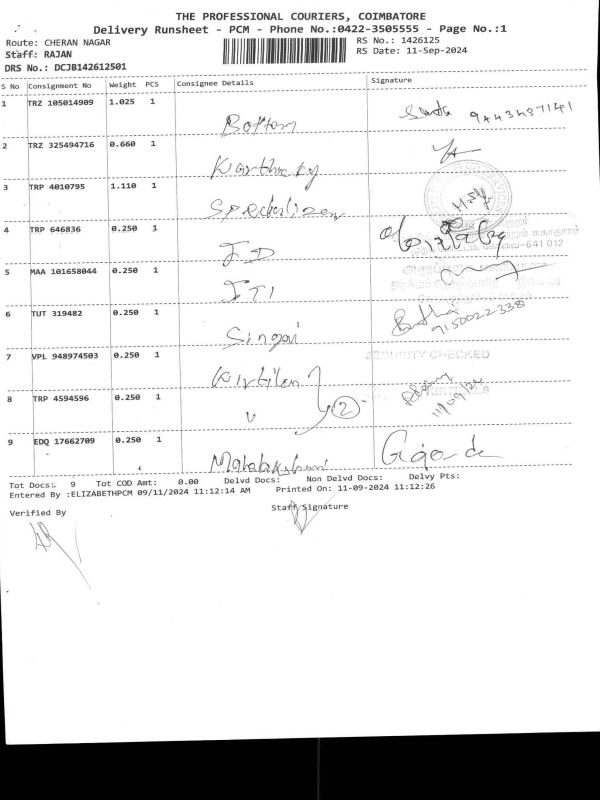 THE PROFESSIONAL COURIERS, COIMBATORE
Delivery Runsheet - PCM - Phone No.:0422-3505555 - Page No.:1
Route: CHERAN NAGAR
RS No.: 1426125
Staff: RAJAN
RS Date: 11-Sep-2024
DRS No.: DCJB142612501
S No Consignment No Weight PCS Consignee Details Signature
1 TRZ 105014909 1.025 1
9443437141
2 TRZ 325494716 0.660 1
3 TRP 4010795 1.110 1
4 TRP 646836 0.250 1
J.D
-641 012
5 MAA 101658044 0.250 1
ITI
6 TUT 319482 0.250 1
Singai
9150022338
7 VPL 948974503 0.250 1
SECURITY CHECKED
8 TRP 4594596 0.250 1
2
11/09/24
9 EDQ 17662709 0.250 1
Tot Docs: 9 Tot COD Amt: 0.00 Delvd Docs: Non Delvd Docs: Delvy Pts:
Entered By :ELIZABETHPCM 09/11/2024 11:12:14 AM Printed On: 11-09-2024 11:12:26
Verified By
Staff Signature